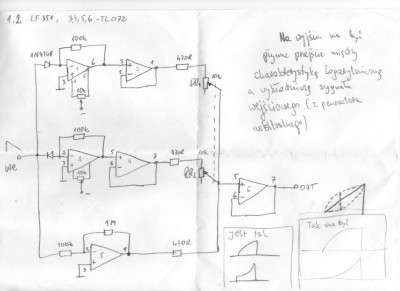 1,2 - LF351, 3,4,5,6 - TL072
1N4148
100k
10k
470R
10k
PR1
100k
10k
470R
10k
PR2
We
100k
1M
470R
OUT
Na wyjściu ma być
płynne przejście między
charakterystyką logarytmiczną
a wykładniczą sygnału
wejściowego (z generatora
arbitralnego)
Jest tak
Tak ma być